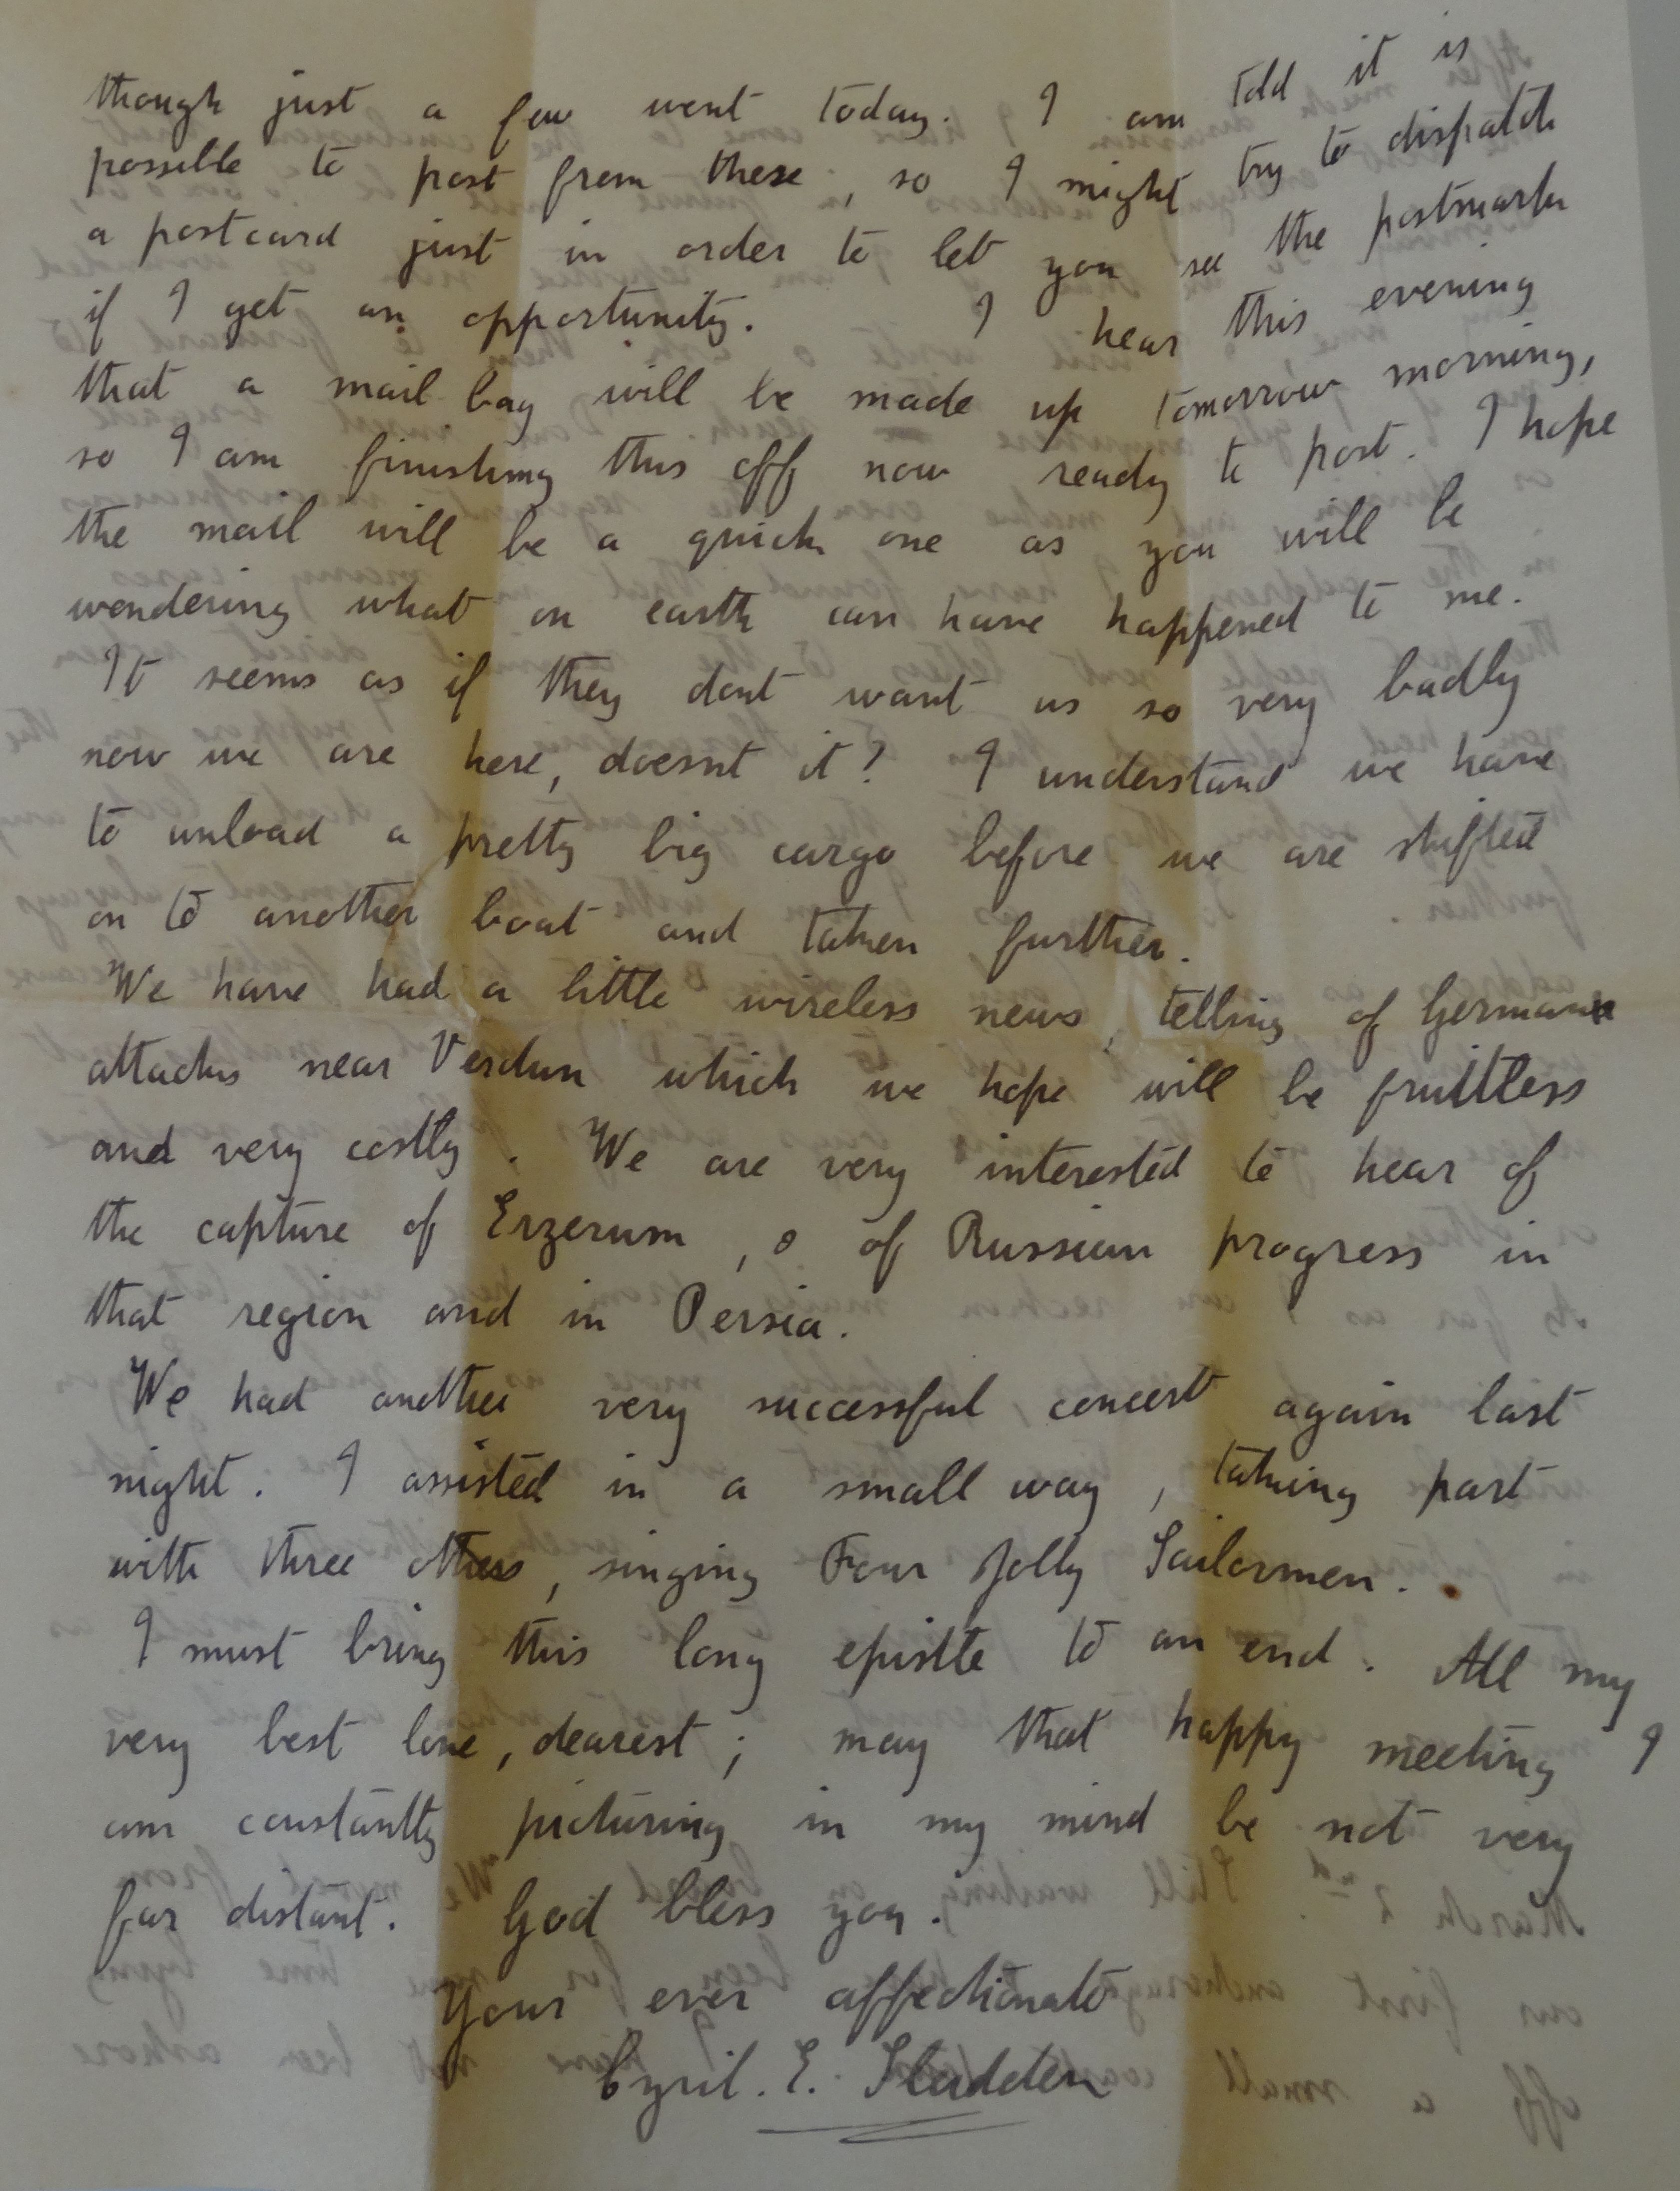 though just a few went today. I am told it is
possible to post from there, so I might try to dispatch
a postcard just in order to let you see the postmark
if I get an opportunity. I hear this evening
that a mail bag will be made up tomorrow morning,
so I am finishing this off now ready to post. I hope
the mail will be a quick one as you will be
wondering what on earth can have happened to me.
It seems as if they dont want us so very badly
now we are here, doesnt it? I understand we have
to unload a pretty big cargo before we are shifted
on to another boat and taken further.
We have had a little wireless news, telling of German
attacks near Verdun which we hope will be fruitless
and very costly. We are very interested to hear of
the capture of Erzerum, & of Russian progress in
that region and in Persia.
We had another very successful concert again last
night. I assisted in a small way, taking part
with three others, singing Four Jolly Sailormen.
I must bring this long epistle to an end. All my
very best love, dearest; may that happy meeting I
am constantly picturing in my mind be not very
far distant. God bless you.
Your ever affectionate
Cyril. E. Sladden